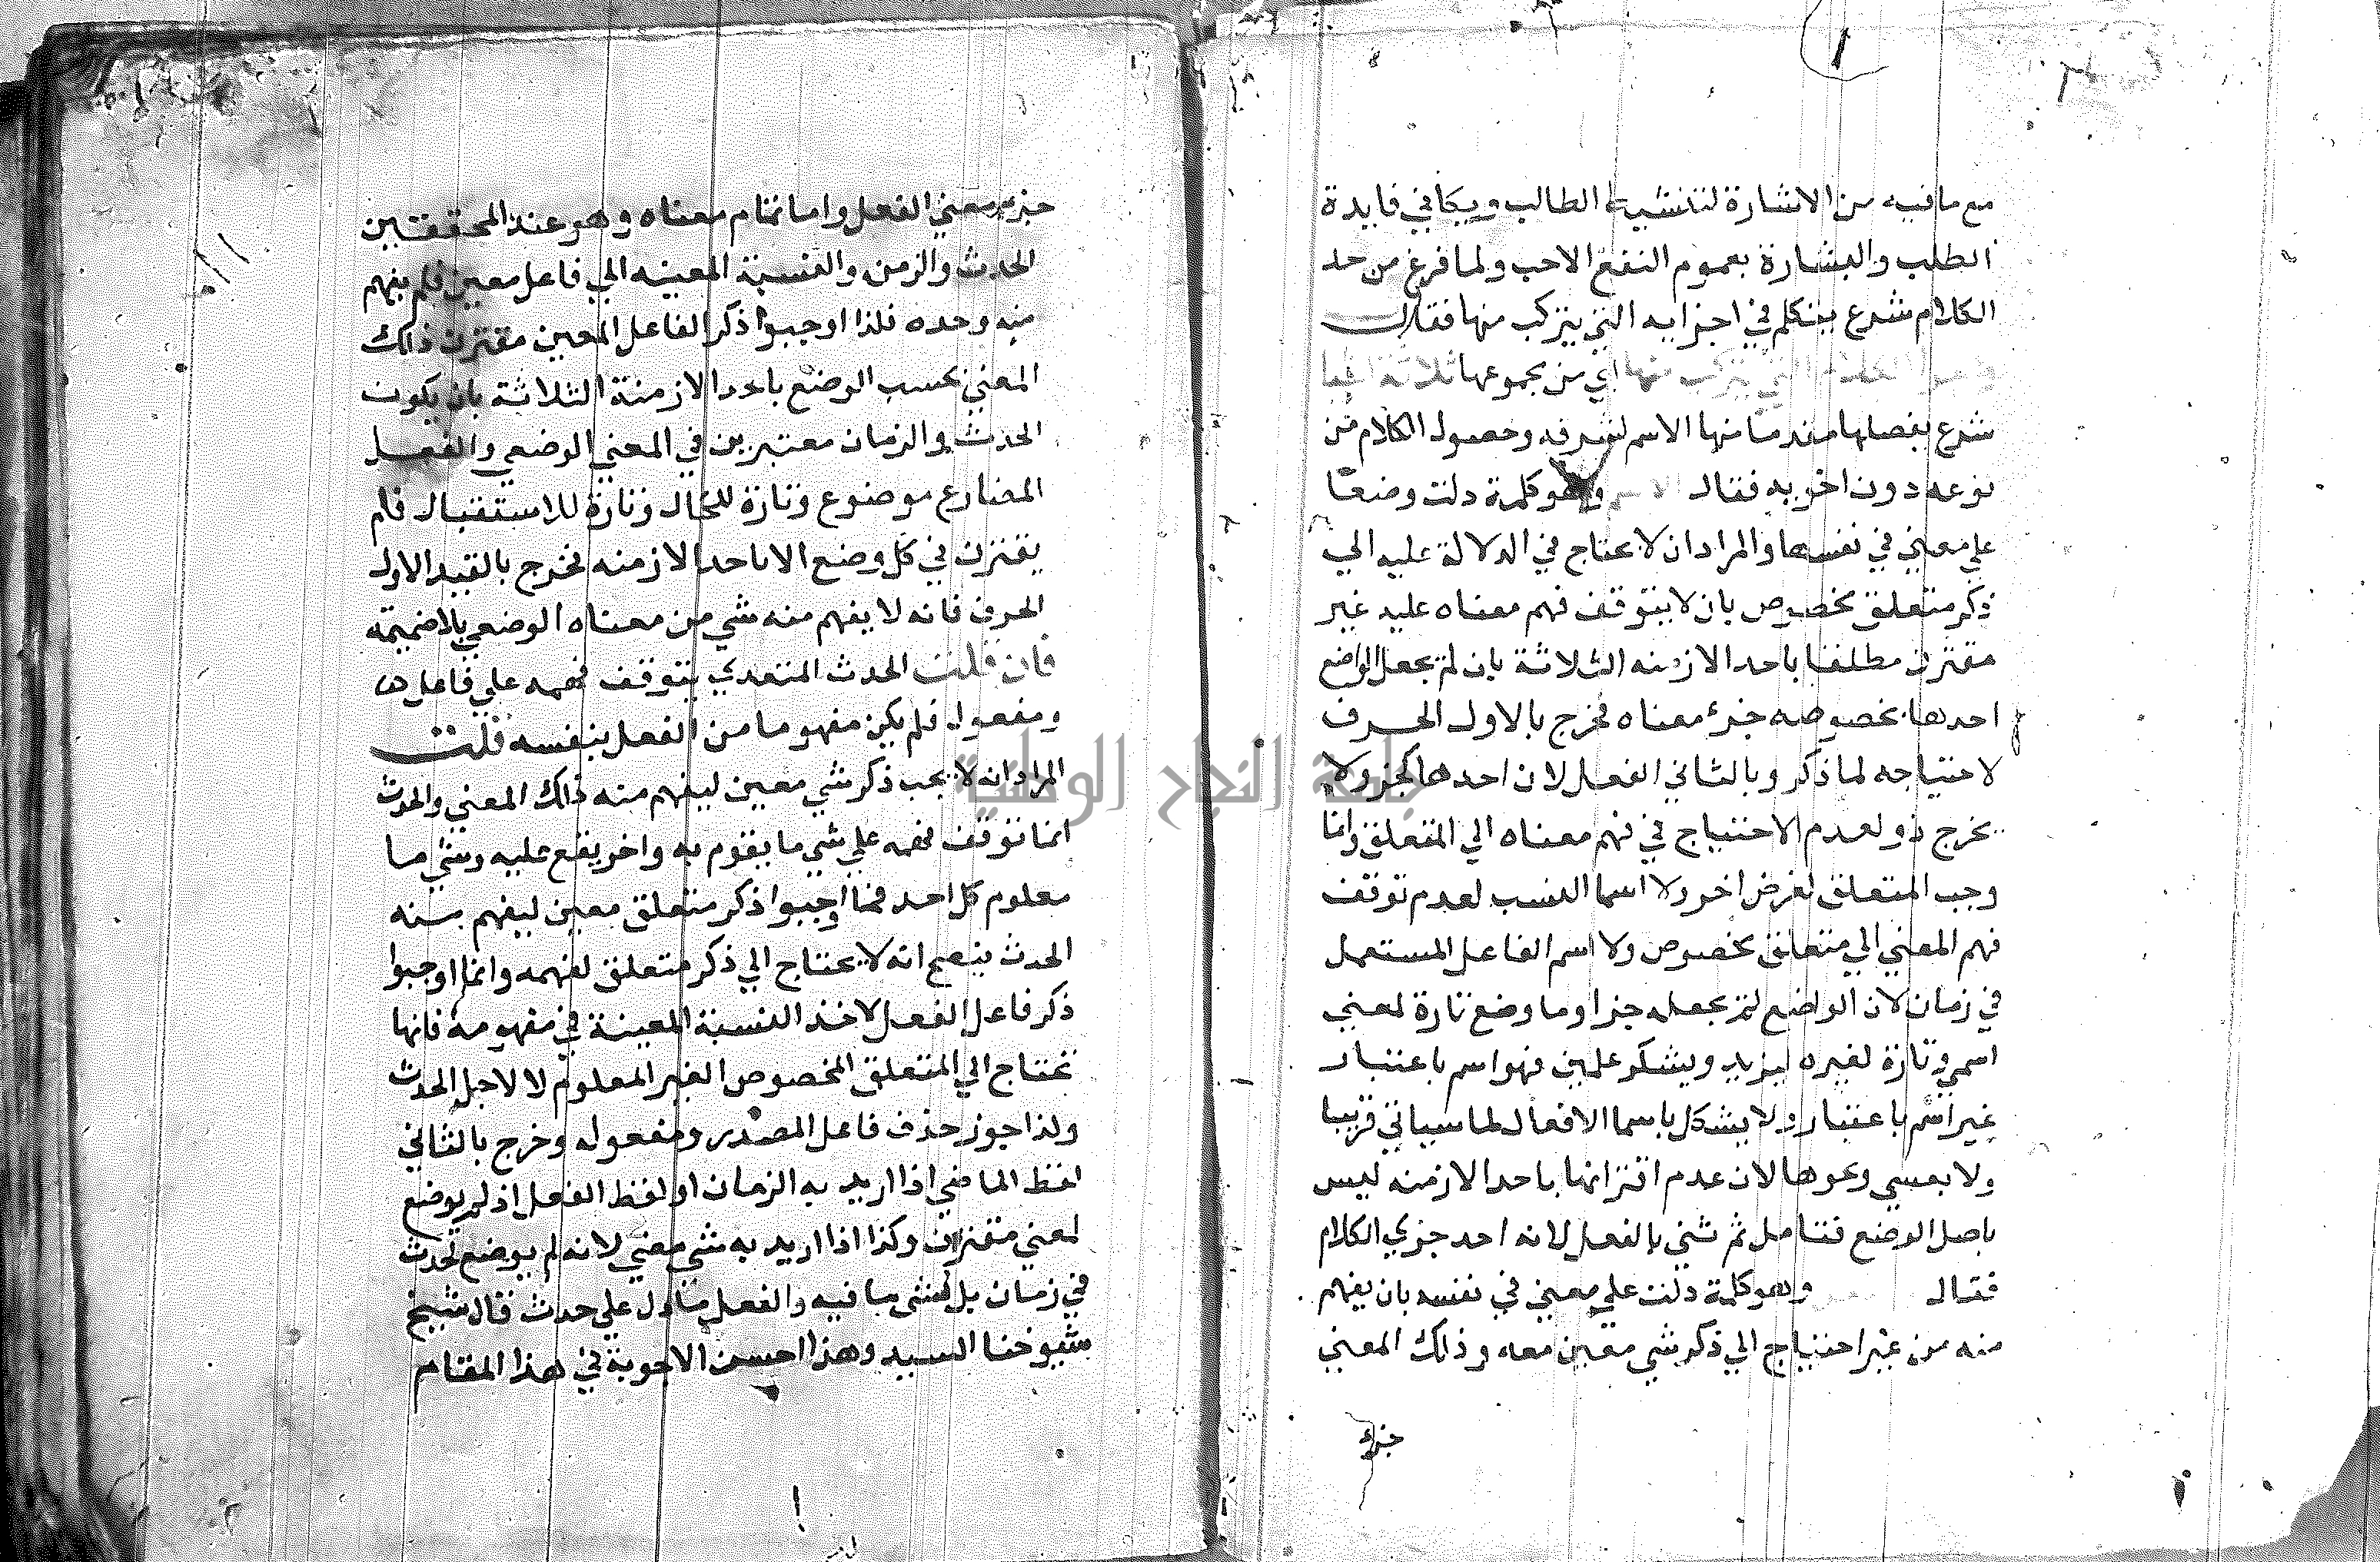 مع ما فيه من الاشارة لتنشيط الطالب ويكافي فايدة
الطلب والبشارة بعموم النفع الاحب ولما فرغ من حد
الكلام شرع يتكلم في اجزايه التي يتركب منها فقال
الكلام التي يتركب منها اي من مجموعها ثلاثة
شرع يفصلها مقدما منها الاسم لشرفه وحصول الكلام من
نوعه دون اخويه فقال وهو كلمة دلت وضعا
علي معني في نفسها والمراد ان لا يحتاج في الدلالة عليه الي
ذكر متعلق مخصوص بان لا يتوقف فهم معناه عليه غير
مقترن مطلقا باحد الازمنه الثلاثة بان لم يجعل الواضع
احدها بخصوصه جزء معناه فخرج بالاول الحرف
لاحتياجه لما ذكر وبالثاني الفعل لان احدها كجزء ولا
يخرج ذو لعدم الاحتياج في فهم معناه الي المتعلق وانما
وجب المتعلق لغرض اخر ولا اسما النسب لعدم توقف
فهم المعني الي متعلق مخصوص ولا اسم الفاعل المستعمل
في زمان لان الواضع لم يجعله جزا وما وضع تارة لمعني
اسمي وتارة لغيره ليزيد ويشكر علمين فهو اسم باعتبار
غير اسم باعتبار ولا يشكل باسما الافعال لما سياتي قريبا
ولا بعسي ونحوها لان عدم اقترانها باحد الازمنه ليس
باصل الوضع فتامل ثم ثني بالفعل لانه احد جزي الكلام
فقال وهو كلمة دلت علي معني في نفسه بان يفهم
منه من غير احتياج الي ذكر شي معين معه وذلك المعني
جزء
جزء معني الفعل واما تمام معناه وهو عند المحققين
الحدث والزمن والنسبة المعينه الي فاعل معين فلم يفهم
منه وحده فلذا اوجبوا ذكر الفاعل المعين مقترن ذلك
المعني بحسب الوضع باحد الازمنة الثلاثة بان يكون
الحدث والزمان معتبرين في المعني الوضعي والفعل
المضارع موضوع وتارة للحال وتارة للاستقبال فلم
يقترن في كل وضع الا باحد الازمنه فخرج بالقيد الاول
الحرف فانه لا يفهم منه شي من معناه الوضعي بلا ضميمة
فان قلت الحدث المتعدي يتوقف فهمه علي فاعل
ومفعول فلم يكن مفهوما من الفعل بنفسه قلت
المراد انه لا يجب ذكر شي معين ليفهم منه ذلك المعني والحدث
انما توقف فهمه علي شي ما يقوم به واخر يقع عليه وشي ما
معلوم كل احد فما اوجبوا ذكر متعلق معين ليفهم منه
الحدث فيصح انه لا يحتاج الي ذكر متعلق لفهمه وانما اوجبوا
ذكر فاعل الفعل لاخذ النسبة المعينة في مفهومه فانها
تحتاج الي المتعلق المخصوص الغير المعلوم لا لاجل الحدث
ولذا جوز حذف فاعل المصدر ومفعوله وخرج بالثاني
لفظ الماضي اذا اريد به الزمان او لفظ الفعل اذ لم يوضع
لمعني مقترن وكذا اذا اريد به شي معني لانه لم يوضع لحدث
في زمان بل لشي ما فيه والفعل ما دل علي حدث قال شيخ
شيوخنا السيد وهذا احسن الاجوبة في هذا المقام
جامعة النجاح الوطنية